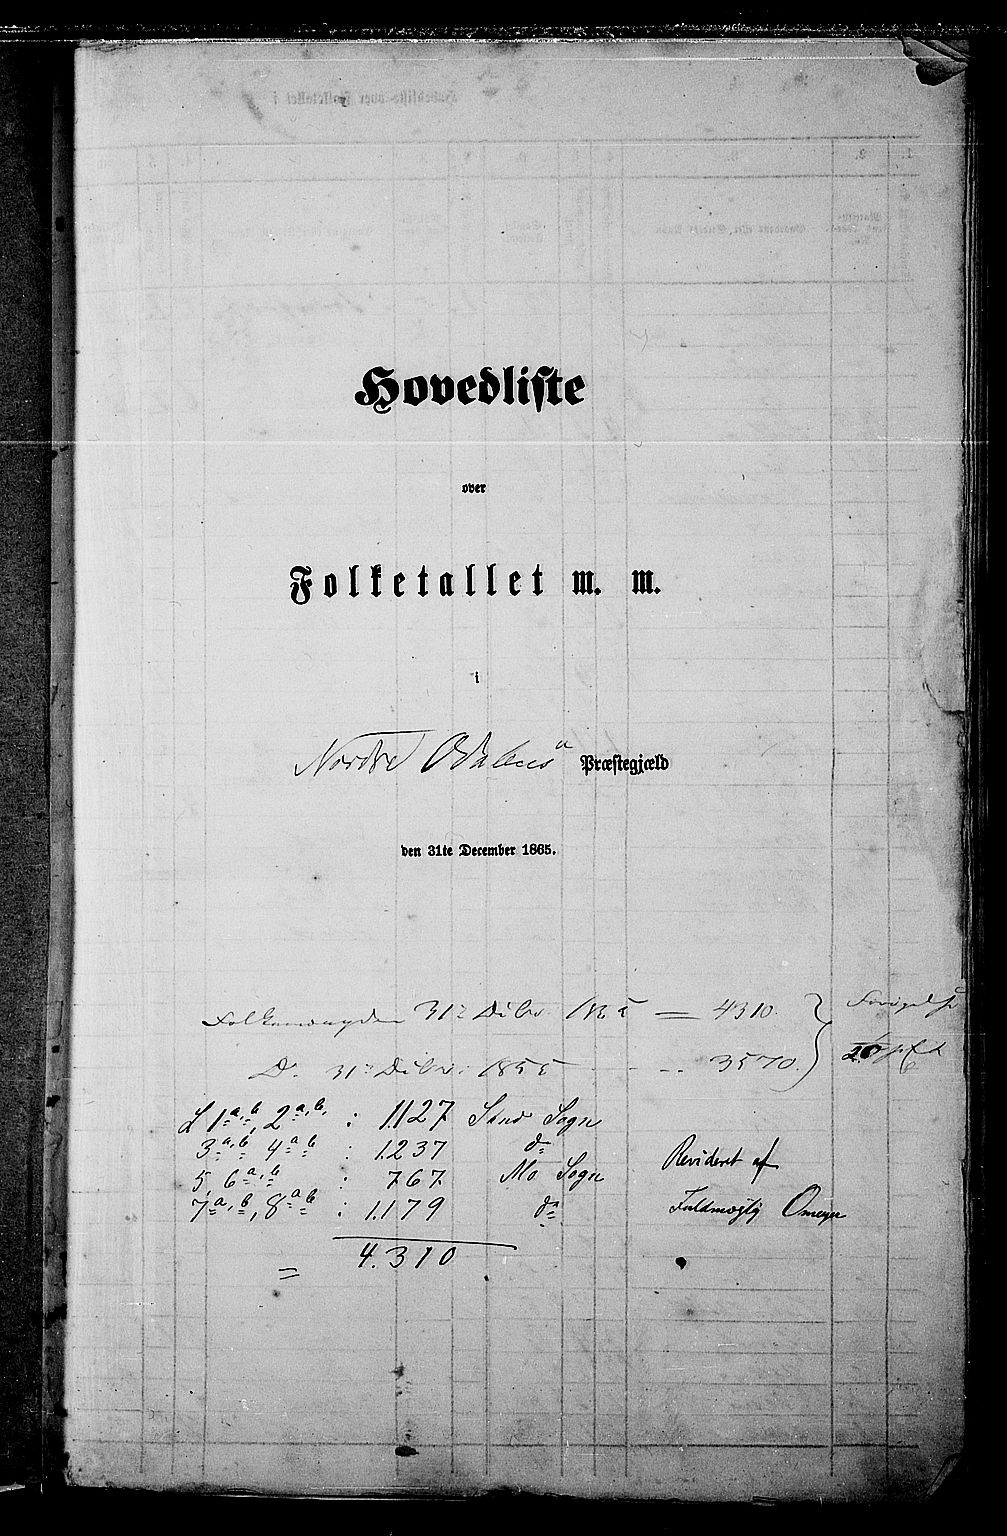 Hovedliste
over
Folketallet m. m.
i
Nordre Odalens Præstegjæld
den 31te December 1865.
Folkemængden 31te Decbr. 1865 = 4310.
Do. 31te Decbr. 1855 - - 3570.
Forøgelse
L 1 a, b, 2 a, b, : 1.127 Sand Sogn
3 a, b 4 a b : 1.237 do
5, 6 a, b : 767. Mo Sogn
7 a, b, 8 a b : 1.179 do
= 4.310
Revideret af
Fuldmægtig